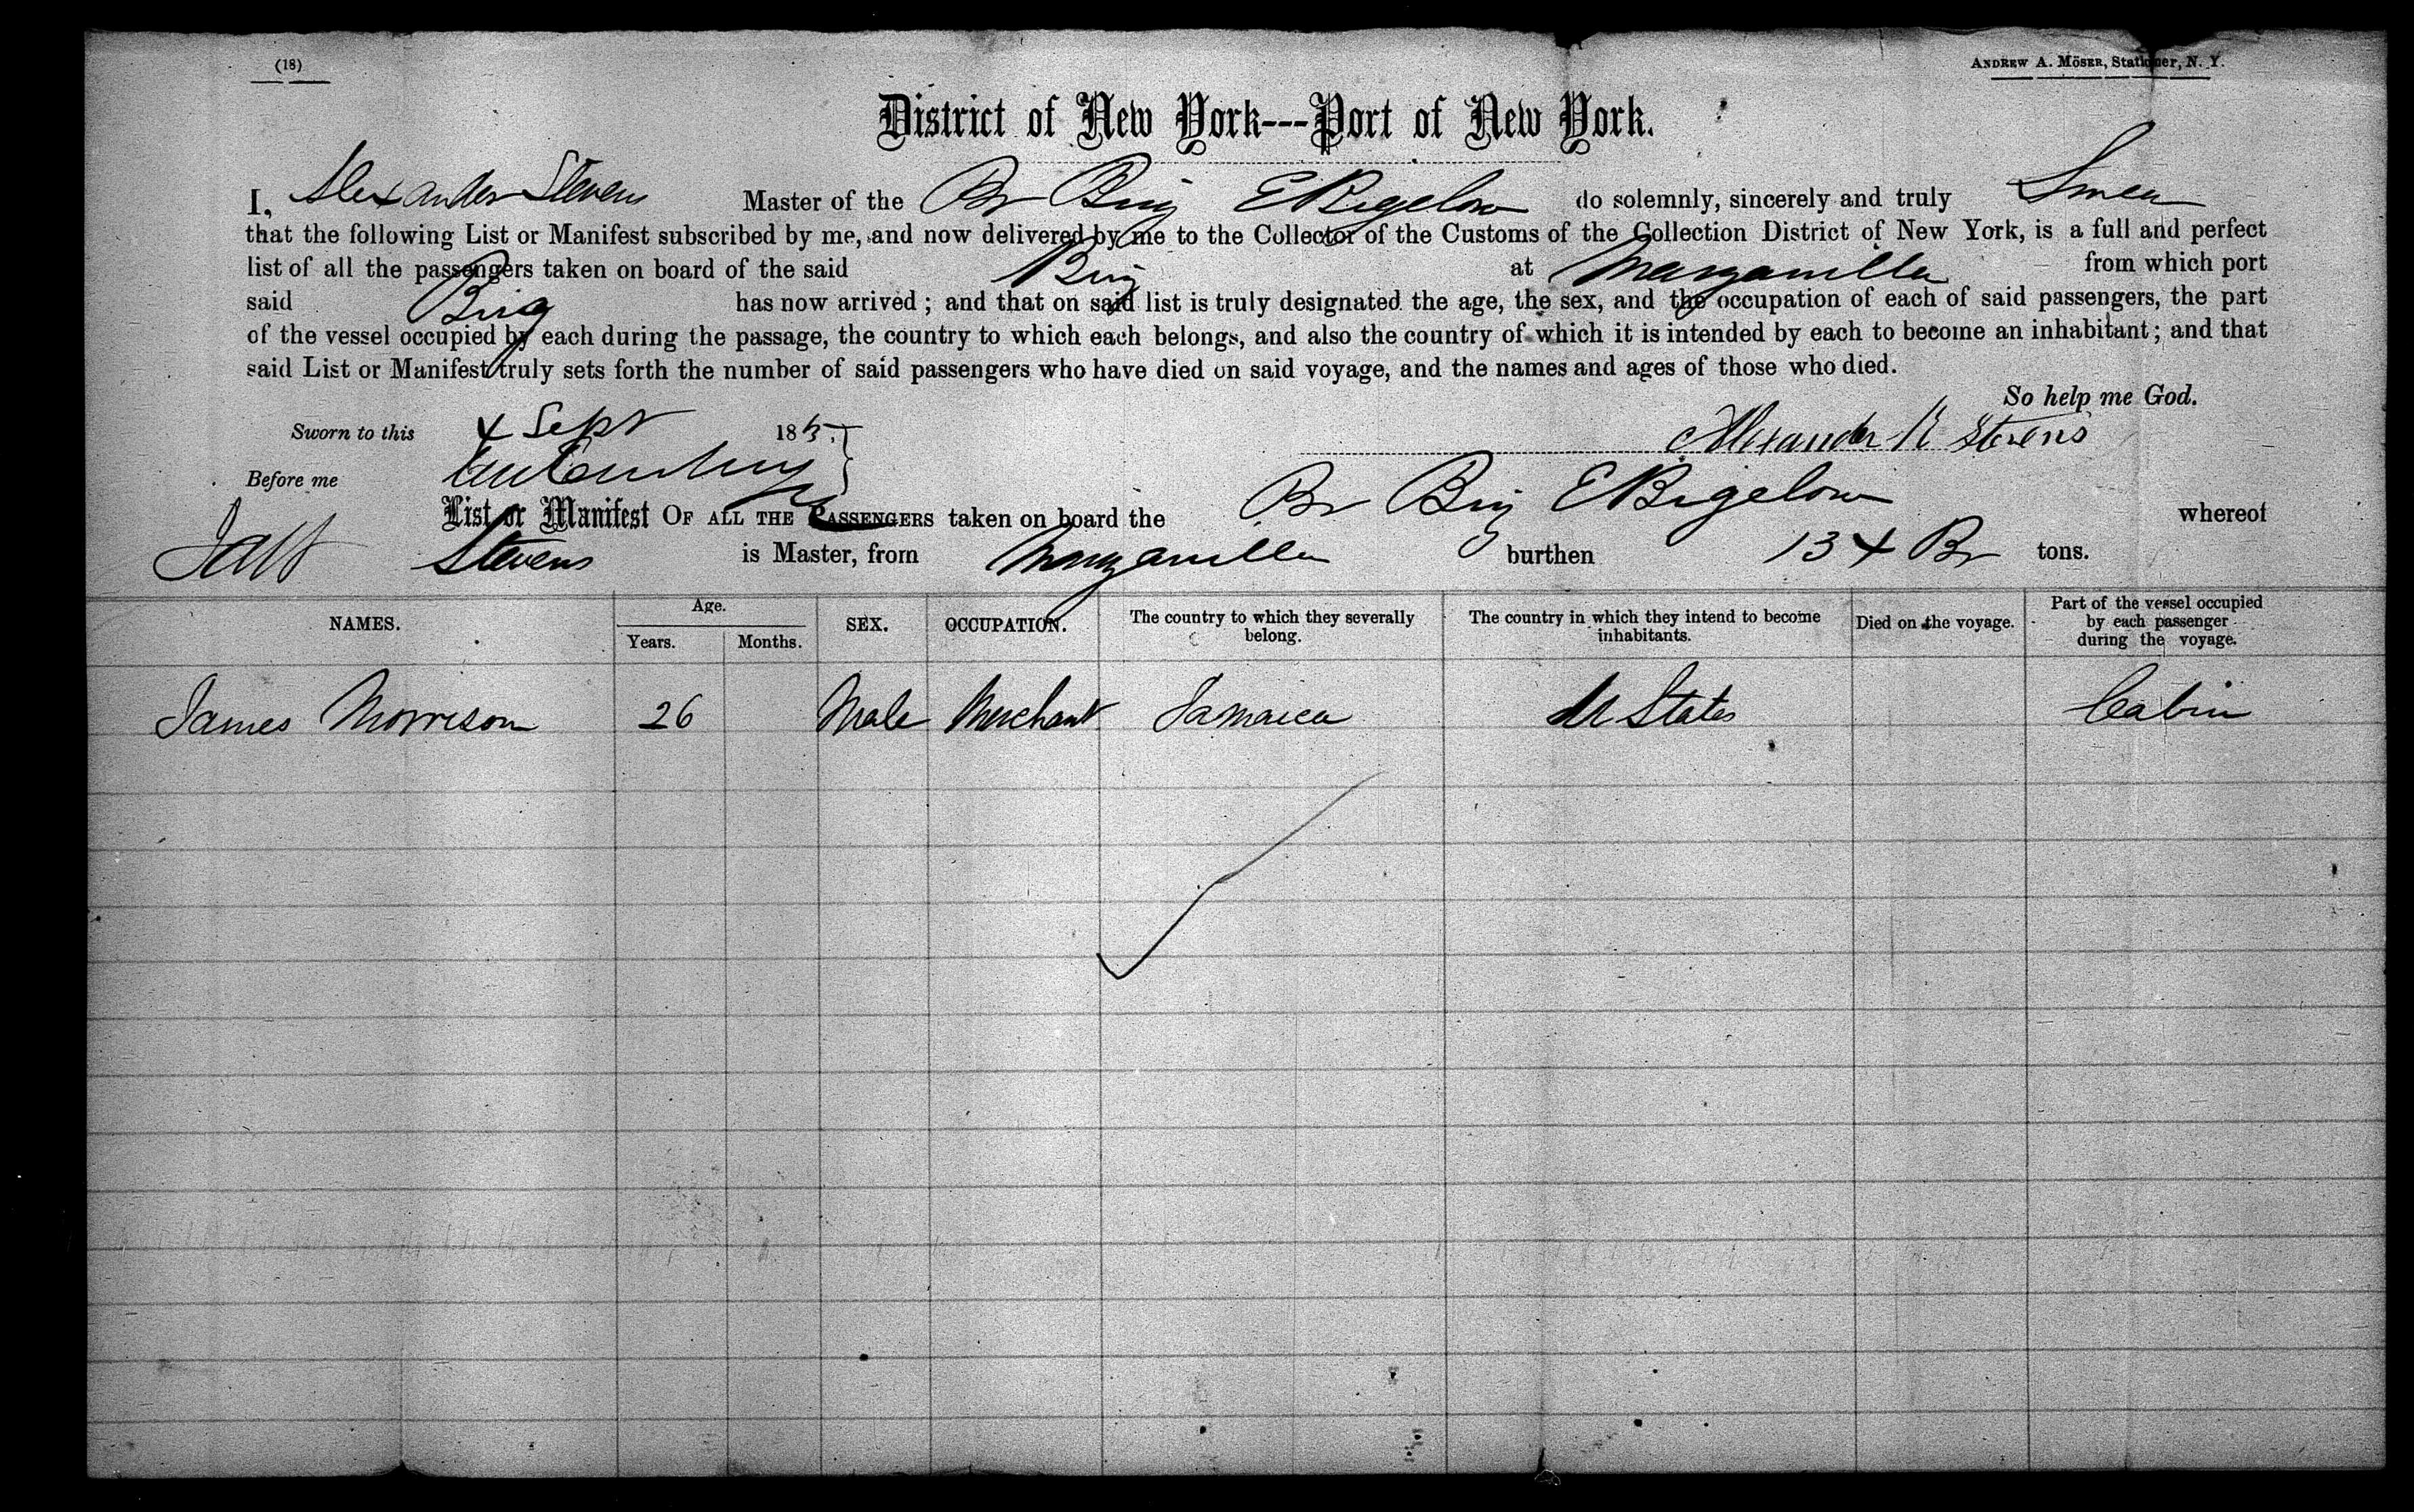 (18)
ANDREW A. MÖSER, Stationer, N. Y.
District of New York---Port of New York.
I, Alexander Stevens Master of the Br Brig E Bigelow do solemnly, sincerely and truly Swear
that the following List or Manifest subscribed by me, and now delivered by me to the Collector of the Customs of the Collection District of New York, is a full and perfect
list of all the passengers taken on board of the said Brig at Manzanilla from which port
said Brig has now arrived; and that on said list is truly designated the age, the sex, and the occupation of each of said passengers, the part
of the vessel occupied by each during the passage, the country to which each belongs, and also the country of which it is intended by each to become an inhabitant; and that
said List or Manifest truly sets forth the number of said passengers who have died on said voyage, and the names and ages of those who died.
So help me God.
Sworn to this 4 Sept 186
Alexander Stevens
Before me
List or Manifest OF ALL THE PASSENGERS taken on board the Br Brig E Bigelow whereof
Stevens is Master, from Manzanilla burthen 134 Br tons.
NAMES. Age. Years. Months. SEX. OCCUPATION. The country to which they severally belong. The country in which they intend to become inhabitants. Died on the voyage. Part of the vessel occupied by each passenger during the voyage.
James Morrison 26 Male Merchant Jamaica U States Cabin